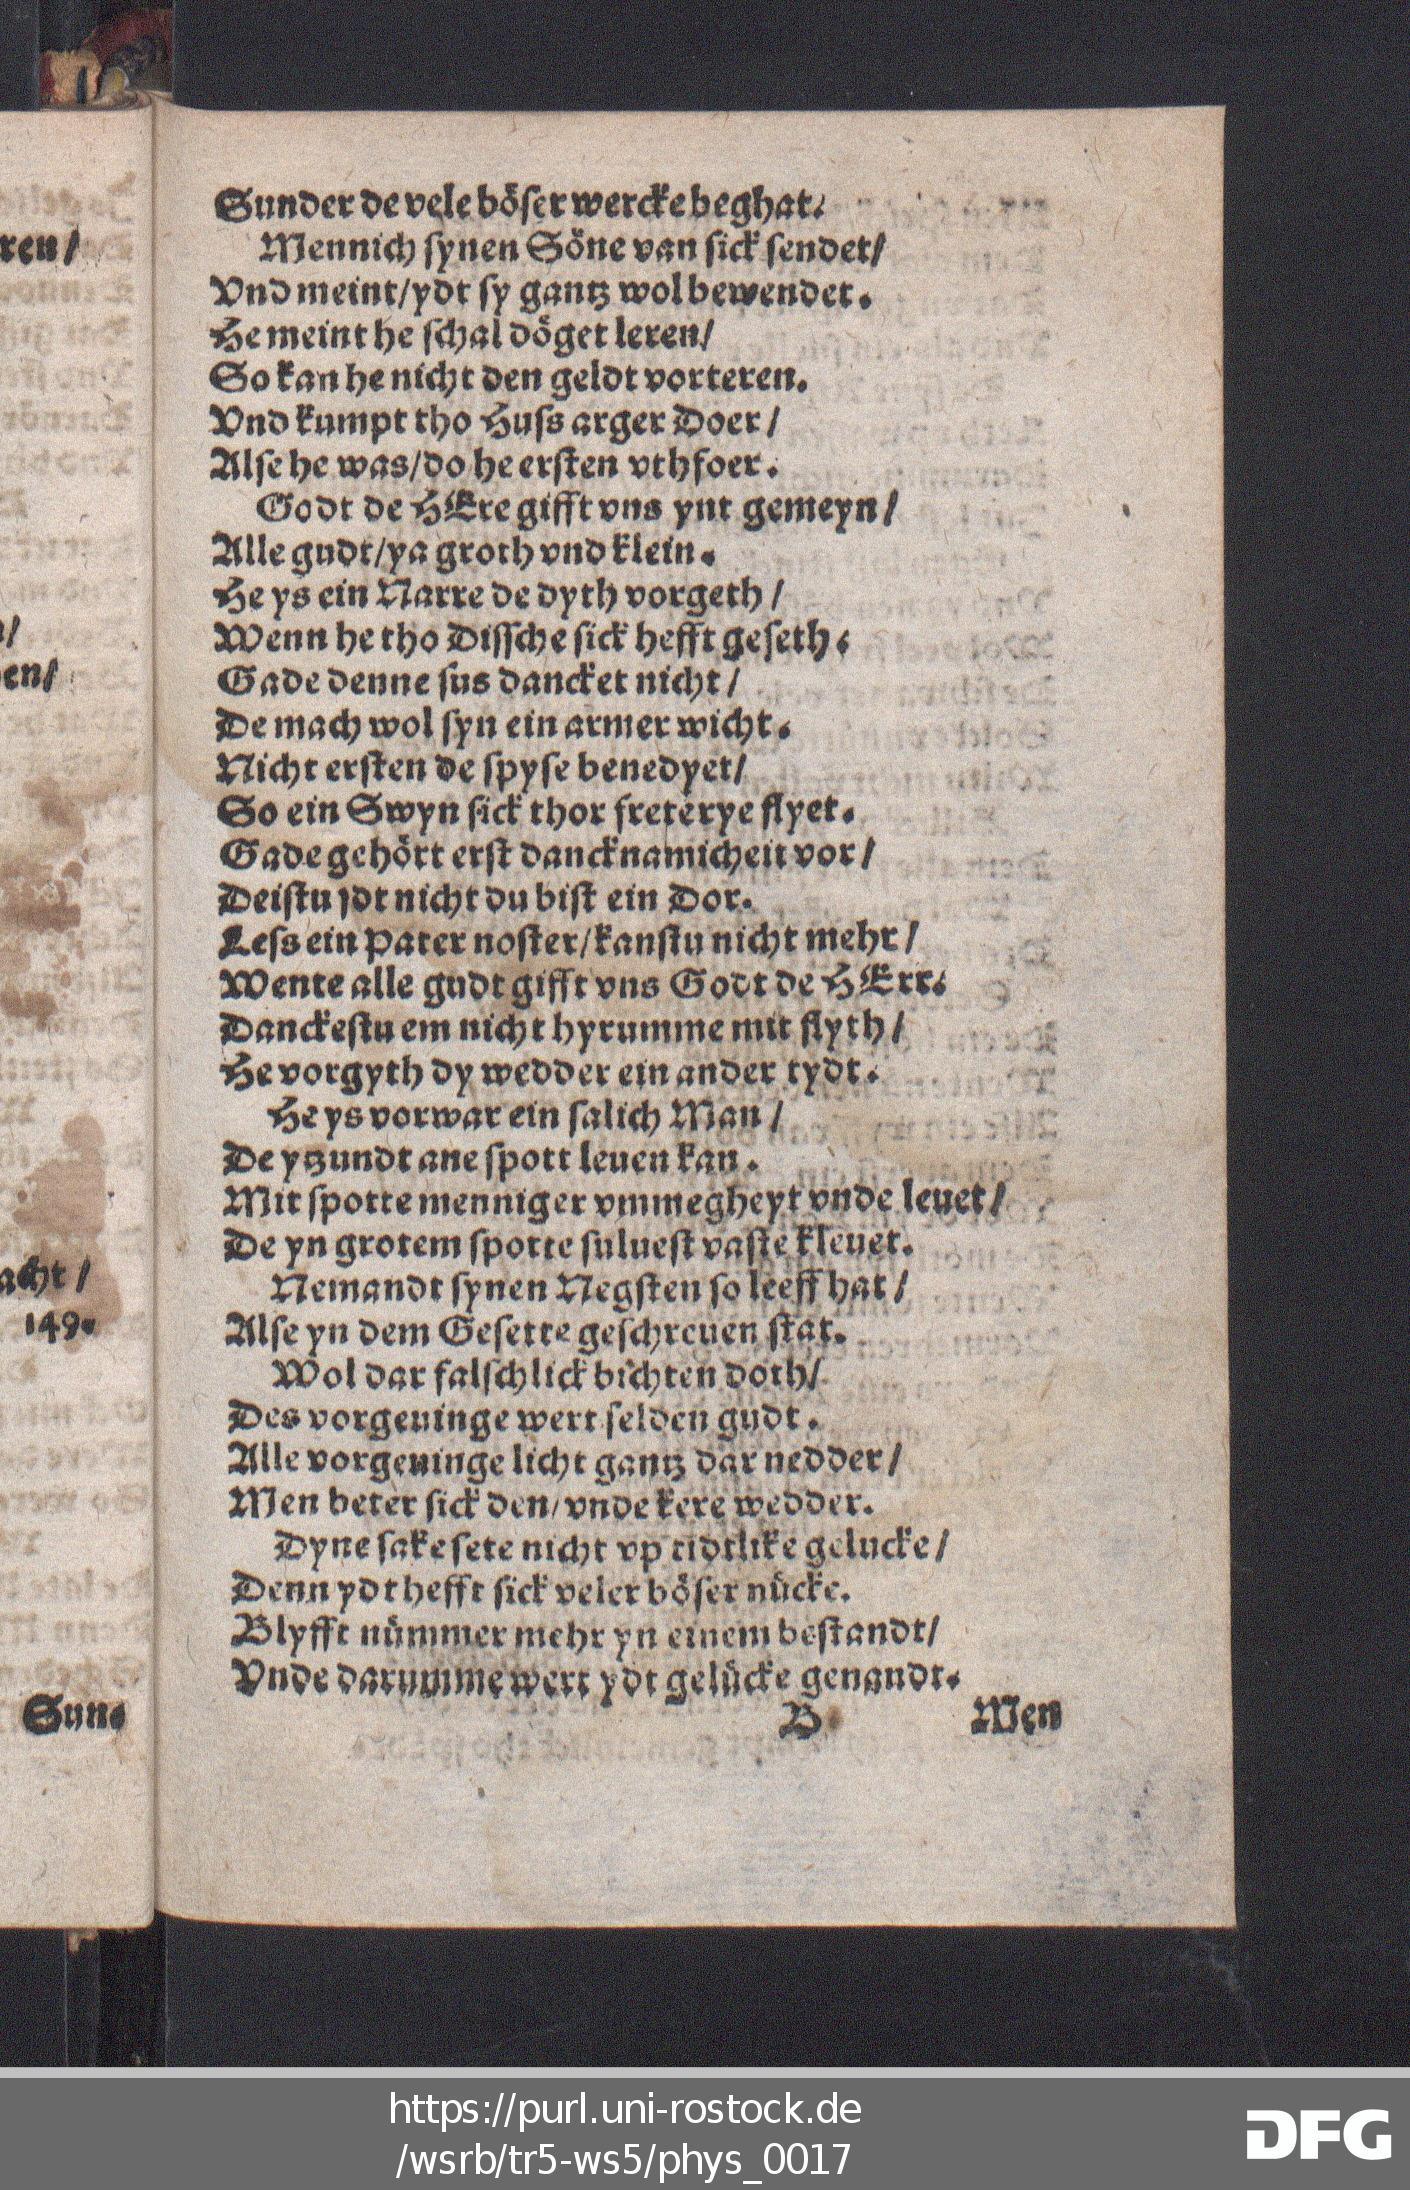 Sunder de vele böser wercke beghat.
Mennich synen Söne van sick sendet/
Vnd meint/ydt sy gantz wol bewendet.
He meint he schal döget leren/
So kan he nicht den geldt vorteren.
Vnd kumpt tho Huss arger Doer/
Alse he was/do he ersten vthfoer.
Godt de HEre gifft vns ynt gemeyn/
Alle gudt/ya groth vnd klein.
He ys ein Narre de dyth vorgeth/
Wenn he tho Dissche sick hefft geseth.
Gade denne sus dancket nicht/
De mach wol syn ein armer wicht.
Nicht ersten de spyse benedyet/
So ein Swyn sick thor freterye flyet.
Gade gehört erst dancknamicheit vor/
Deistu ydt nicht du bist ein Dor.
Less ein Pater noster/kanstu nicht mehr/
Wente alle gudt gifft vns Godt de HErr.
Danckestu em nicht hyrumme mit flyth/
He vorgyth dy wedder ein ander tydt.
He ys vorwar ein salich Man/
De ytzundt ane spott leuen kan.
Mit spotte menniger vmmegheyt vnde leuet/
De yn grotem spotte suluest vaste kleuet.
Nemandt synen Negsten so leeff hat/
Alse yn dem Gesette geschreuen stat.
Wol dar falschlick bichten doth/
Des vorgeuinge wert selden gudt.
Alle vorgeuinge licht gantz dar nedder/
Men beter sick den/vnde kere wedder.
Dyne sake sete nicht vp tidtlike gelucke/
Denn ydt hefft sick veler böser nücke.
Blyfft nümmer mehr yn einem bestandt/
Vnde darumme wert ydt gelücke genandt.
B Men
ren/
en/
acht/
149.
Sun.
https://purl.uni-rostock.de
/wsrb/tr5-ws5/phys_0017
DFG